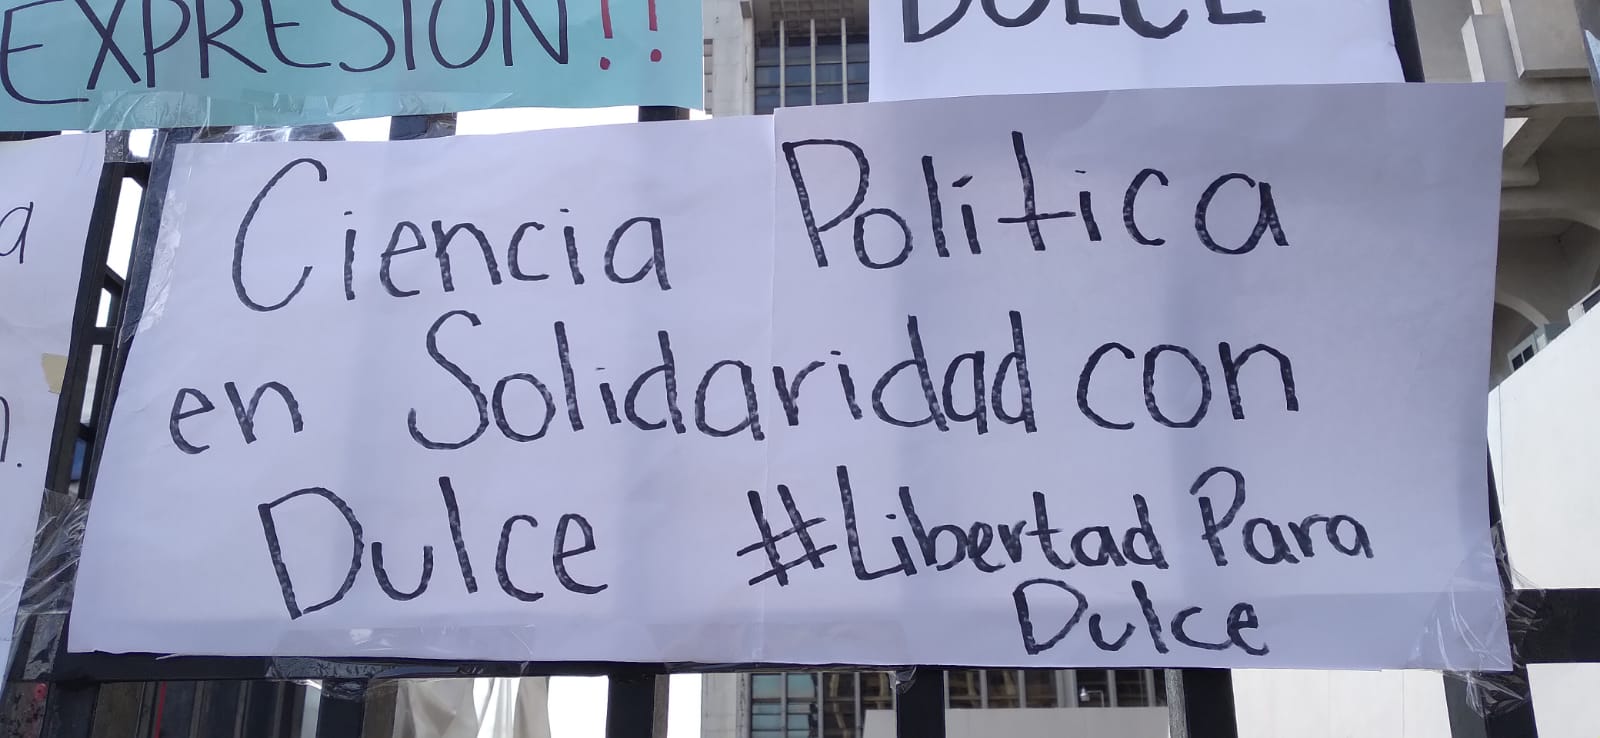 EXPRESIÓN!!
DULCE
a
n.
Ciencia Política
en Solidaridad con
Dulce #Libertad Para
Dulce